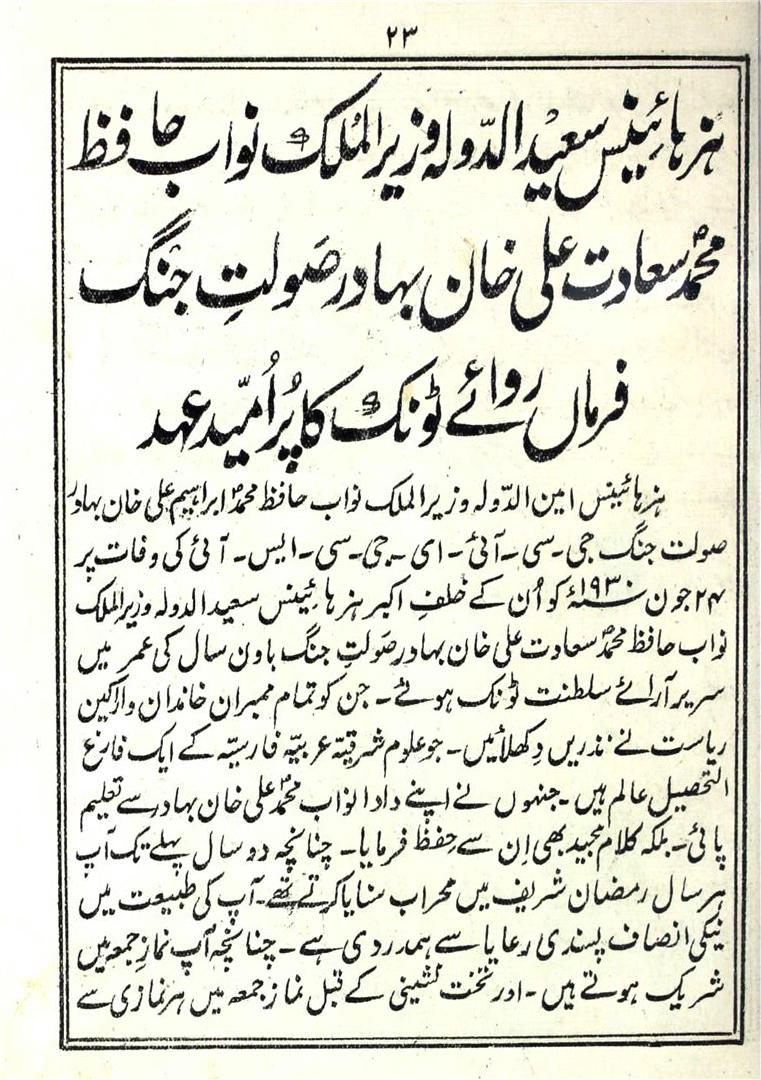 ۲۳
ہز ہائینس سعید الدّولہ وزیر الملک نواب حافظ
محمدؐ سعادت علی خان بہادر صَولتِ جنگ
فرماں روائے ٹونک کا پُر اُمیّد عہد
ہز ہائینس امین الدّولہ وزیر الملک نواب حافظ محمدؐ ابراہیم علی خان بہادر
صولت جنگ جی۔سی۔آئی۔ای۔جی۔سی۔ایس۔آئی کی وفات پر
۲۴ جون ۱۹۳۰ء کو اُن کے خلفِ اکبر ہز ہائینس سعید الدولہ وزیر الملک
نواب حافظ محمدؐ سعادت علی خان بہادر صَولتِ جنگ باون سال کی عمر میں
سریر آرائے سلطنت ٹونک ہوئے۔ جن کو تمام ممبران خاندان و اراکین
ریاست نے نذریں دِکھلائیں۔ جو علوم شرقیّۃ عربیّہ فارسیّہ کے ایک فارغ
التحصیل عالم ہیں۔ جنہوں نے اپنے دادا نواب محمدؐ علی خان بہادر سے تعلیم
پائی۔ بلکہ کلام مجید بھی اِن سے حِفظ فرمایا۔ چنانچہ دو سال پہلے تک آپ
ہر سال رمضان شریف میں محراب سنایا کرتے تھے۔ آپ کی طبیعت میں
نیکی انصاف پسندی رعایا سے ہمدردی ہے۔ چنانچہ آپ نمازِ جمعہ میں
شریک ہوتے ہیں۔ اور تخت نشینی کے قبل نماز جمعہ میں ہر نمازی سے